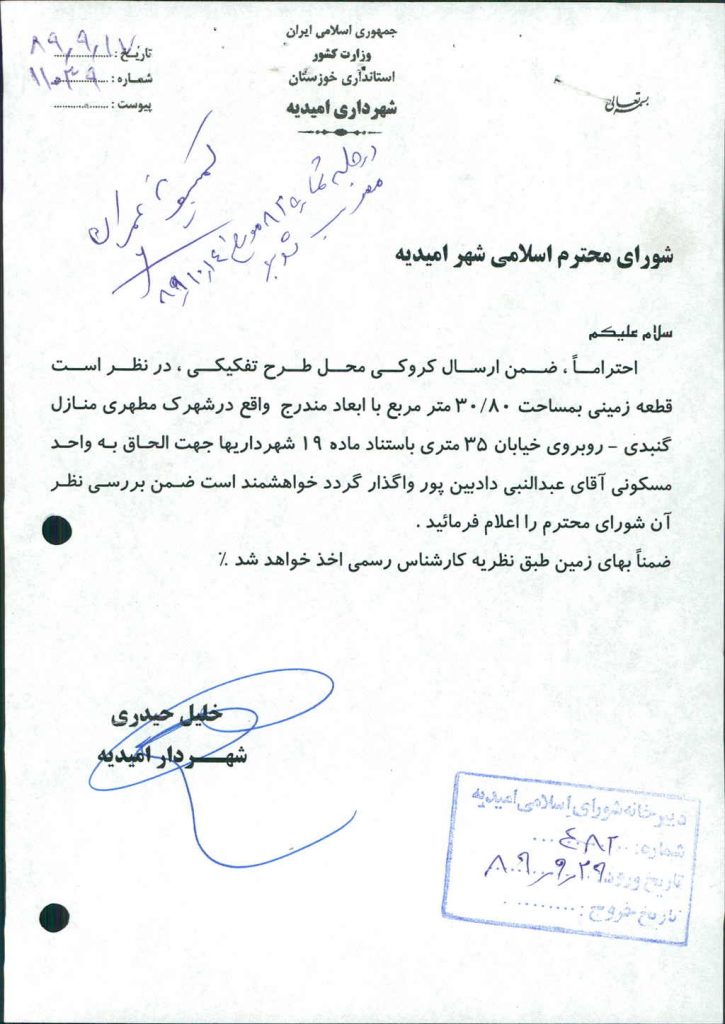 بسمه تعالی
جمهوری اسلامی ایران
وزارت کشور
استانداری خوزستان
شهرداری امیدیه
تاریخ : ۸۹٫۹٫۱۷
شماره : ۱۱۰۳۹
پیوست :
کمیسیون عمران
در جلسه شماره ۸۲ مورخ ۸۹٫۱۰٫۱۴
شورای محترم اسلامی شهر امیدیه
سلام علیکم
احترامـاً ، ضمـن ارسـال کروکـی محـل طـرح تفکیکـی ، در نظـر اسـت
قطعه زمینی بمساحت ۳۰/۸۰ متر مربع با ابعاد مندرج واقع درشهرک مطهری منازل
گنبدی - روبروی خیابان ۳۵ متری باستناد ماده ۱۹ شهرداریها جهت الحاق به واحد
مسکونی آقای عبدالنبی دادبین پور واگذار گردد خواهشمند است ضمن بررسی نظر
آن شورای محترم را اعلام فرمائید .
ضمناً بهای زمین طبق نظریه کارشناس رسمی اخذ خواهد شد ٪
خلیل حیدری
شهـــردار امیدیه
دبیرخانه شورای اسلامی امیدیه
شماره: ۴۸۲
تاریخ ورود ۸۹٫۹٫۲۹
تاریخ خروج :